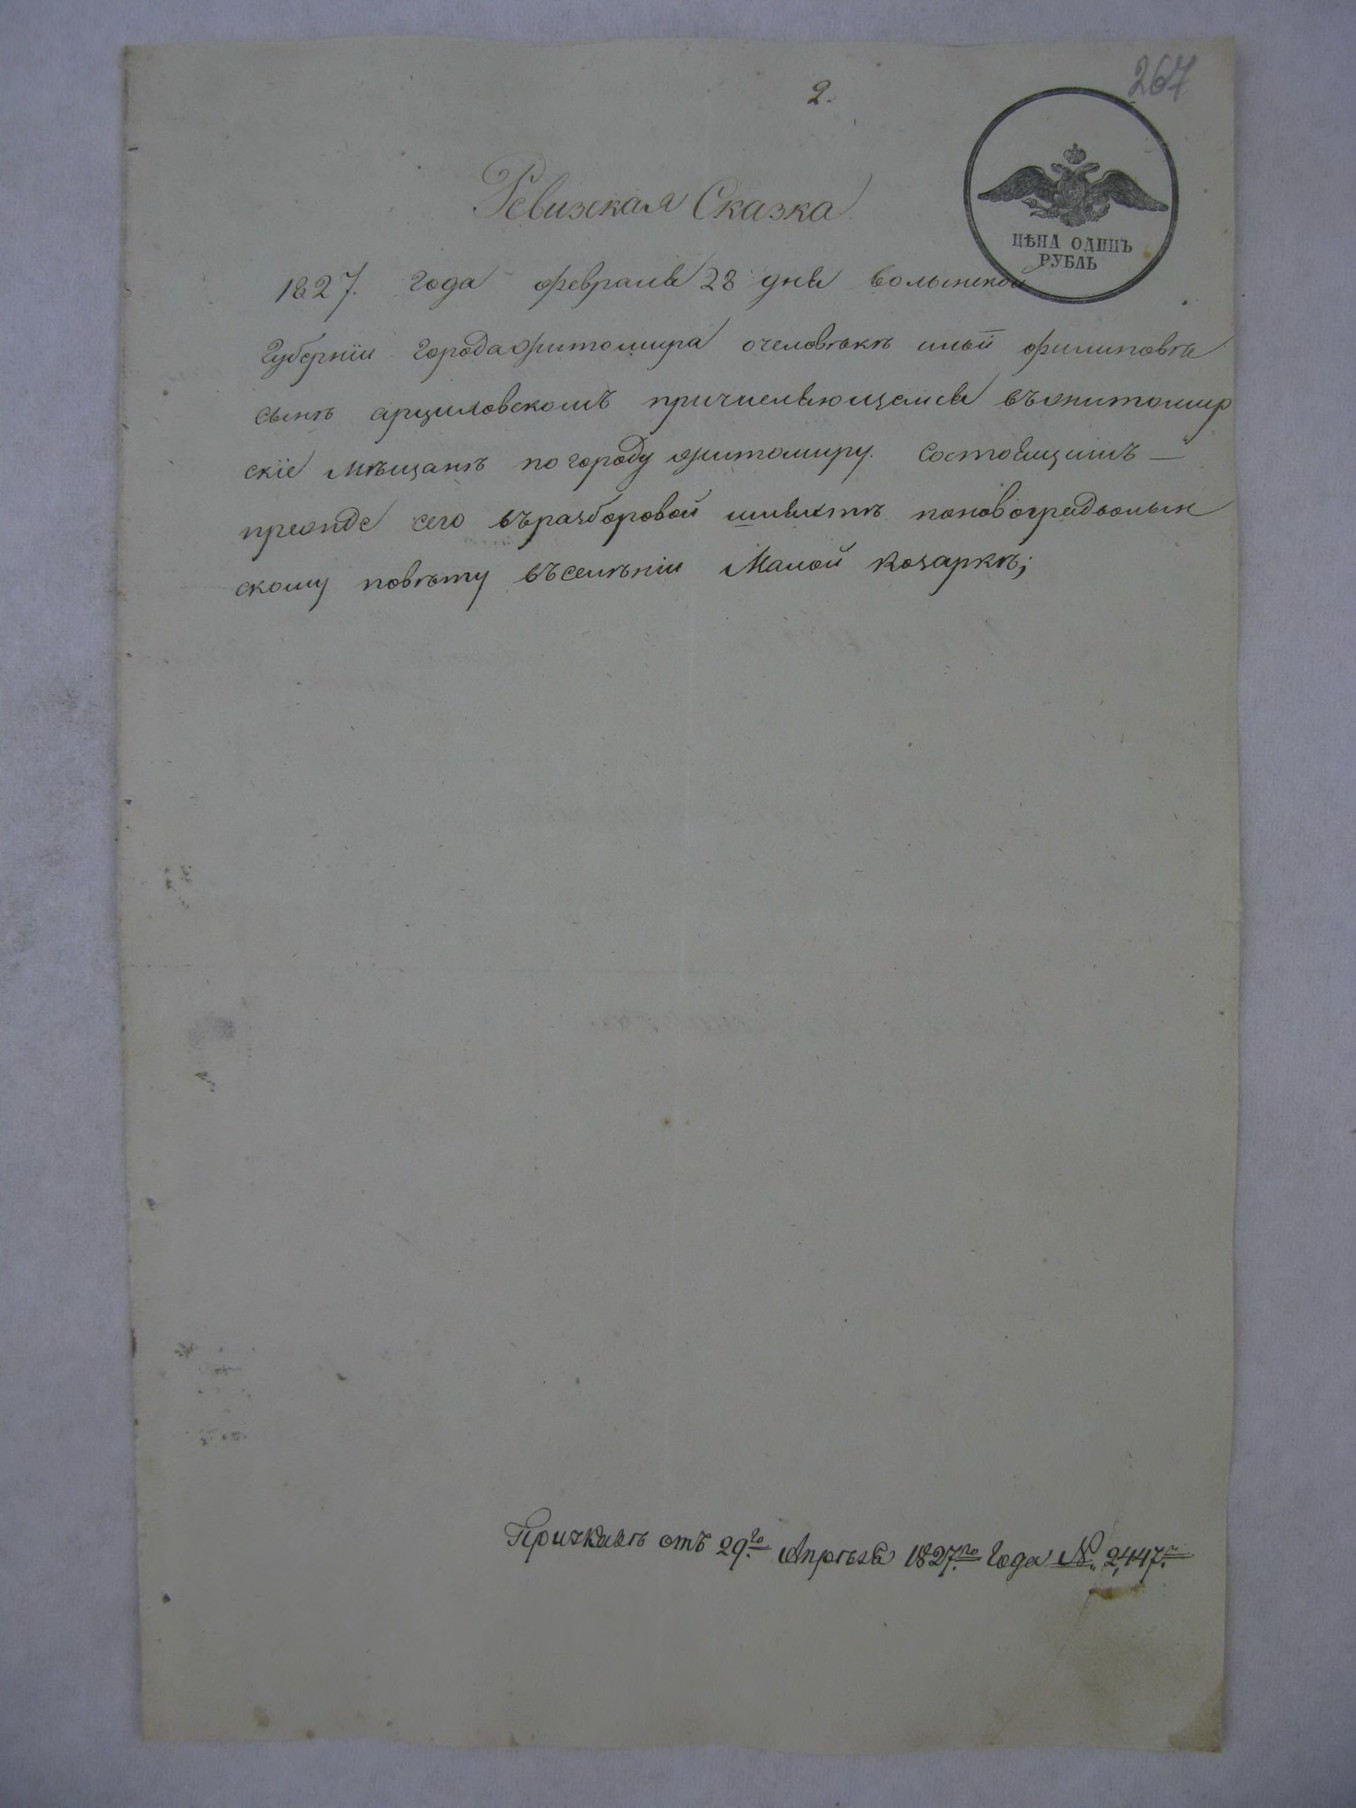 267
2.
ЦѢНА ОДИНЪ
РУБЛЬ
Ревизская Сказка
1827. года февраля 28 дня волынской
Губернїи города житомира о человѣкѣ ильи филиповѣ
сынѣ арциловскомъ причисляющемся въ житомир
скїе мѣщанѣ по городу житомиру. состоящимъ —
прежде сего въ разборовой шляхтѣ по новоградволын
скому повѣту въ селѣнїи Малой Козаркѣ;
отъ 29.го Апрѣля 1827.го Года №. 2,447.